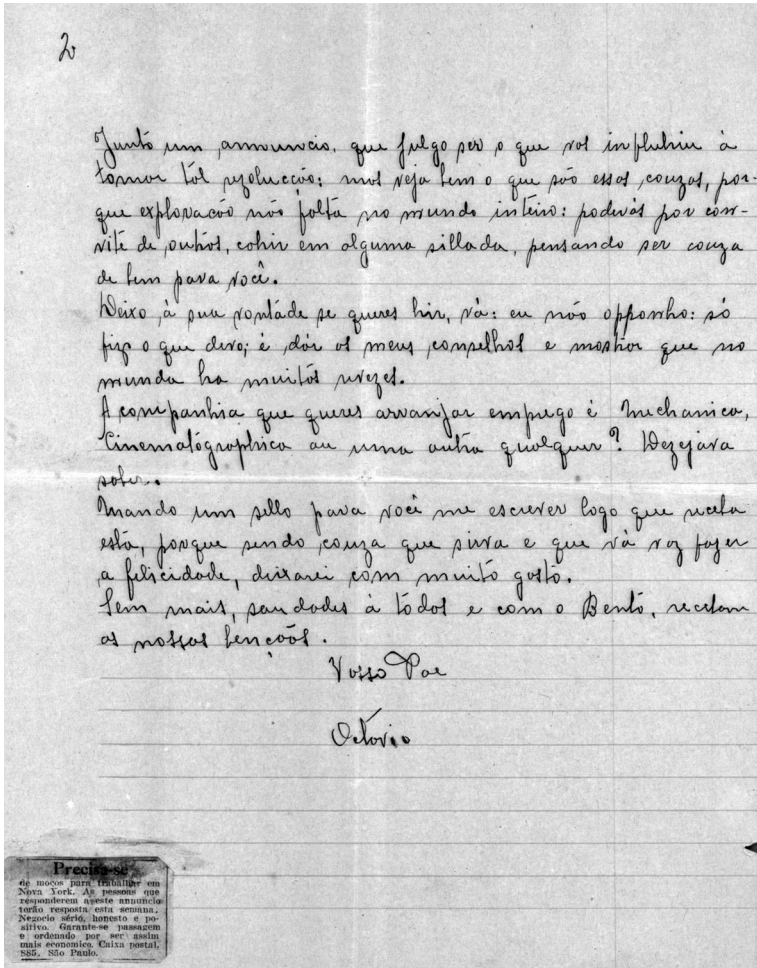 2
Junto um annuncio, que julgo ser o que vos influhiu à
tomar tál rezolucção; mas veja bem o que são essas couzas, por-
que exploracão não falta no mundo inteiro: poderás por con-
vite de outros, cahir em alguma sillada, pensando ser couza
de bem para você.
Deixo á sua vontáde se queres hir, vá: eu não opponho: só
fiz o que devo; é dár os meus conselhos e mostrar que no
mundo ha muitos revezes.
A companhia que queres arranjar emprego é Mechanica,
Cinematógraphica ou uma outra qualquer? Dezejava
saber.
Mando um sello para você me escrever logo que receba
esta, porque sendo couza que sirva e que vá voz fazer
a felicidade, deixarei com muito gosto.
Sem mais, saudades à tódos e com o Bento, recebam
as nossas bençoõs.
Vosso Pae
Octávio
Precisa-se
de moços para trabalhar em
Nova York. As pessoas que
responderem a este annuncio
terão resposta esta semana.
Negocio sério, honesto e po-
sitivo. Garante-se passagem
e ordenado por ser assim
mais economico. Caixa postal,
885, São Paulo.